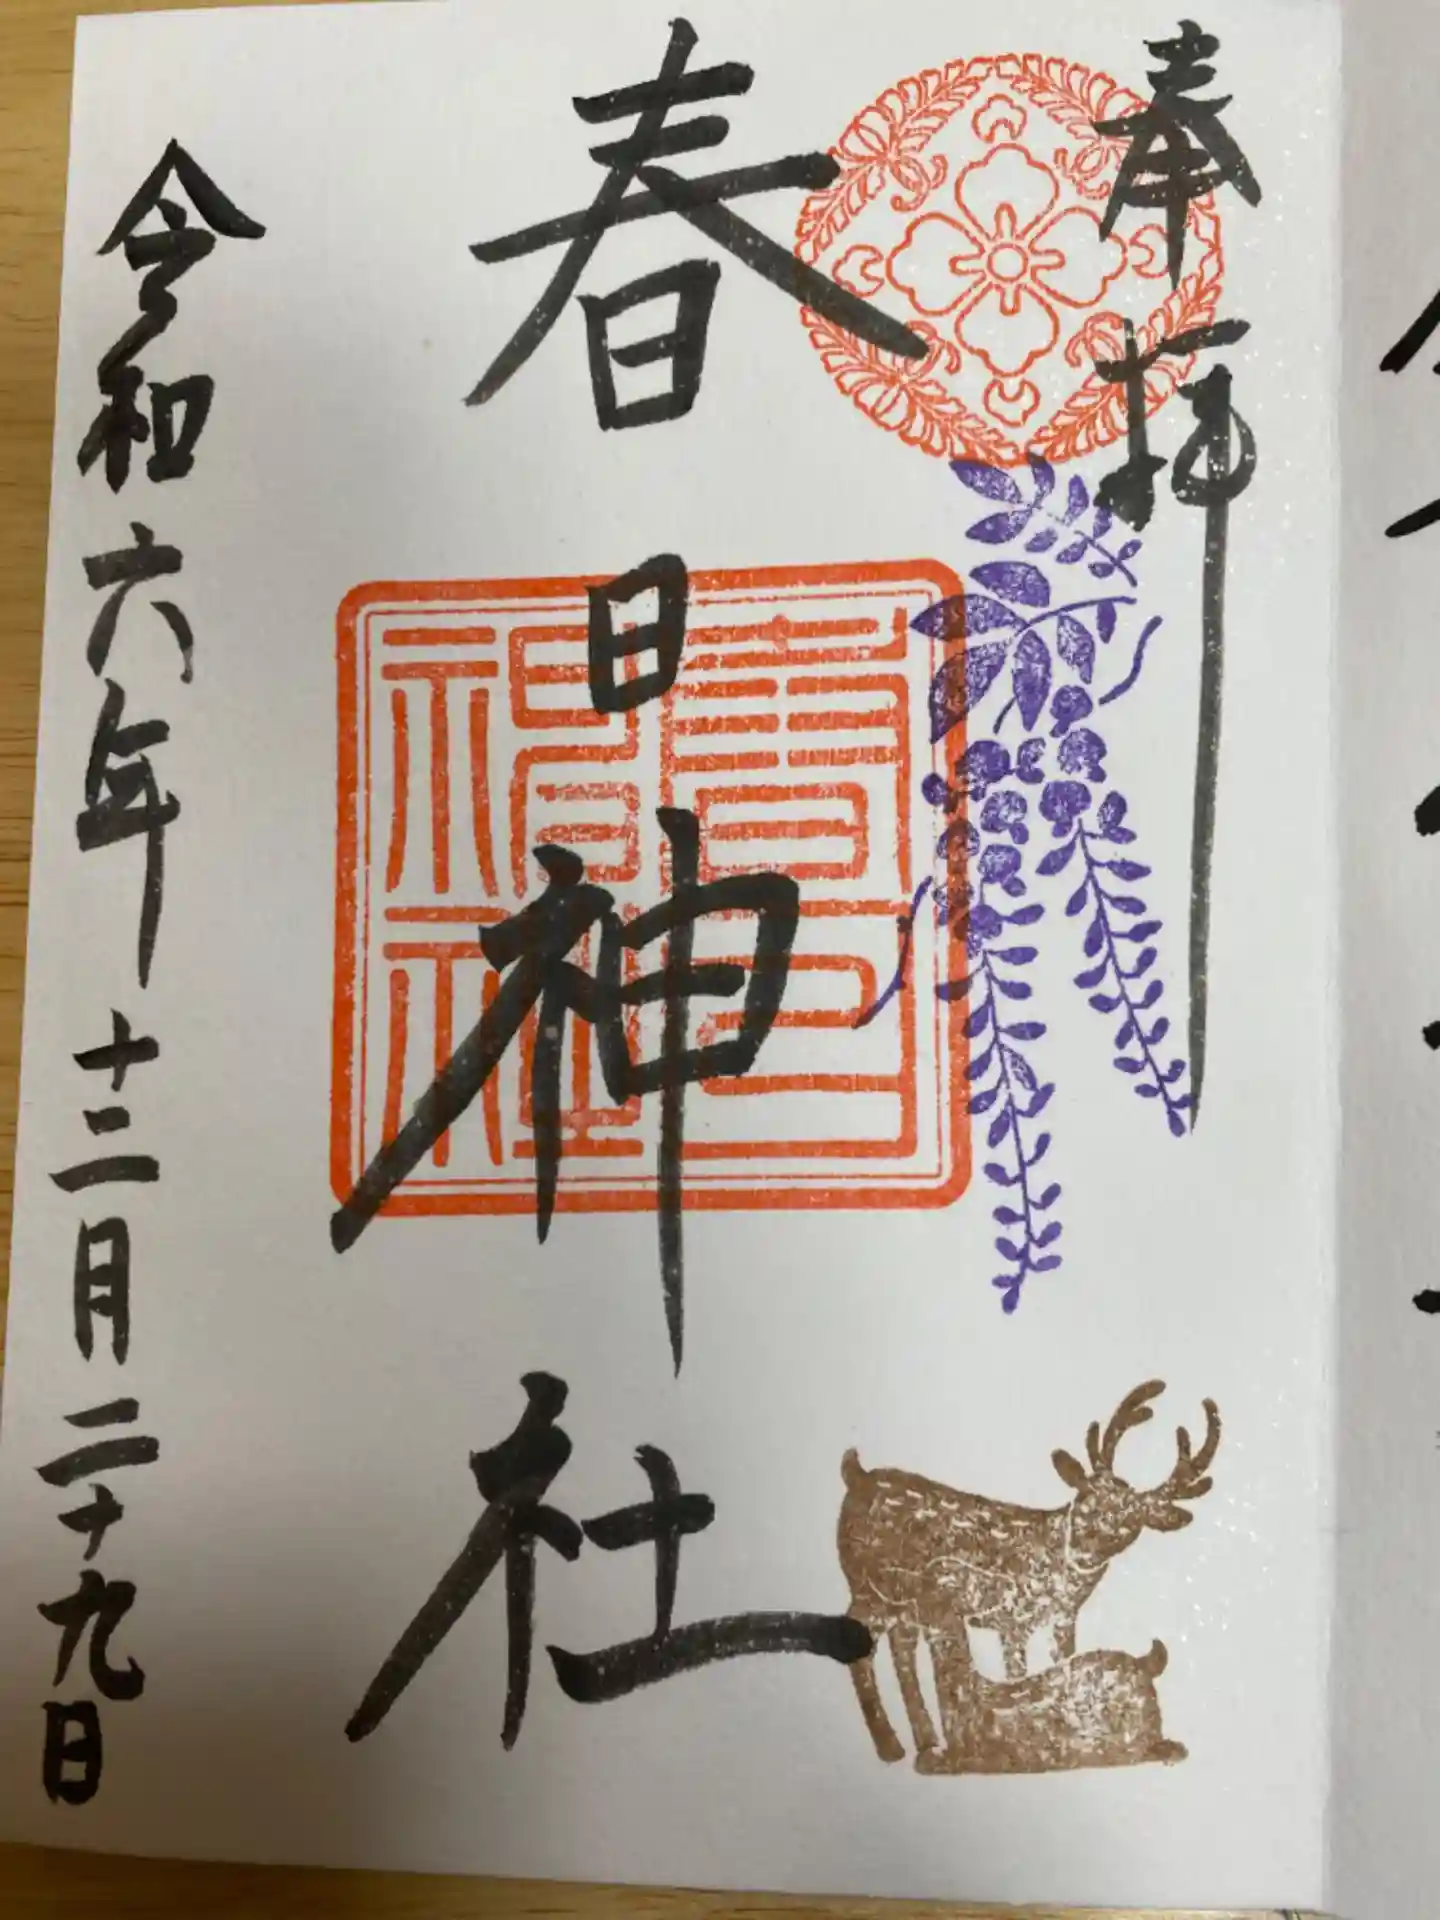 奉拝
春日神社
春日神社
令和六年十二月二十九日